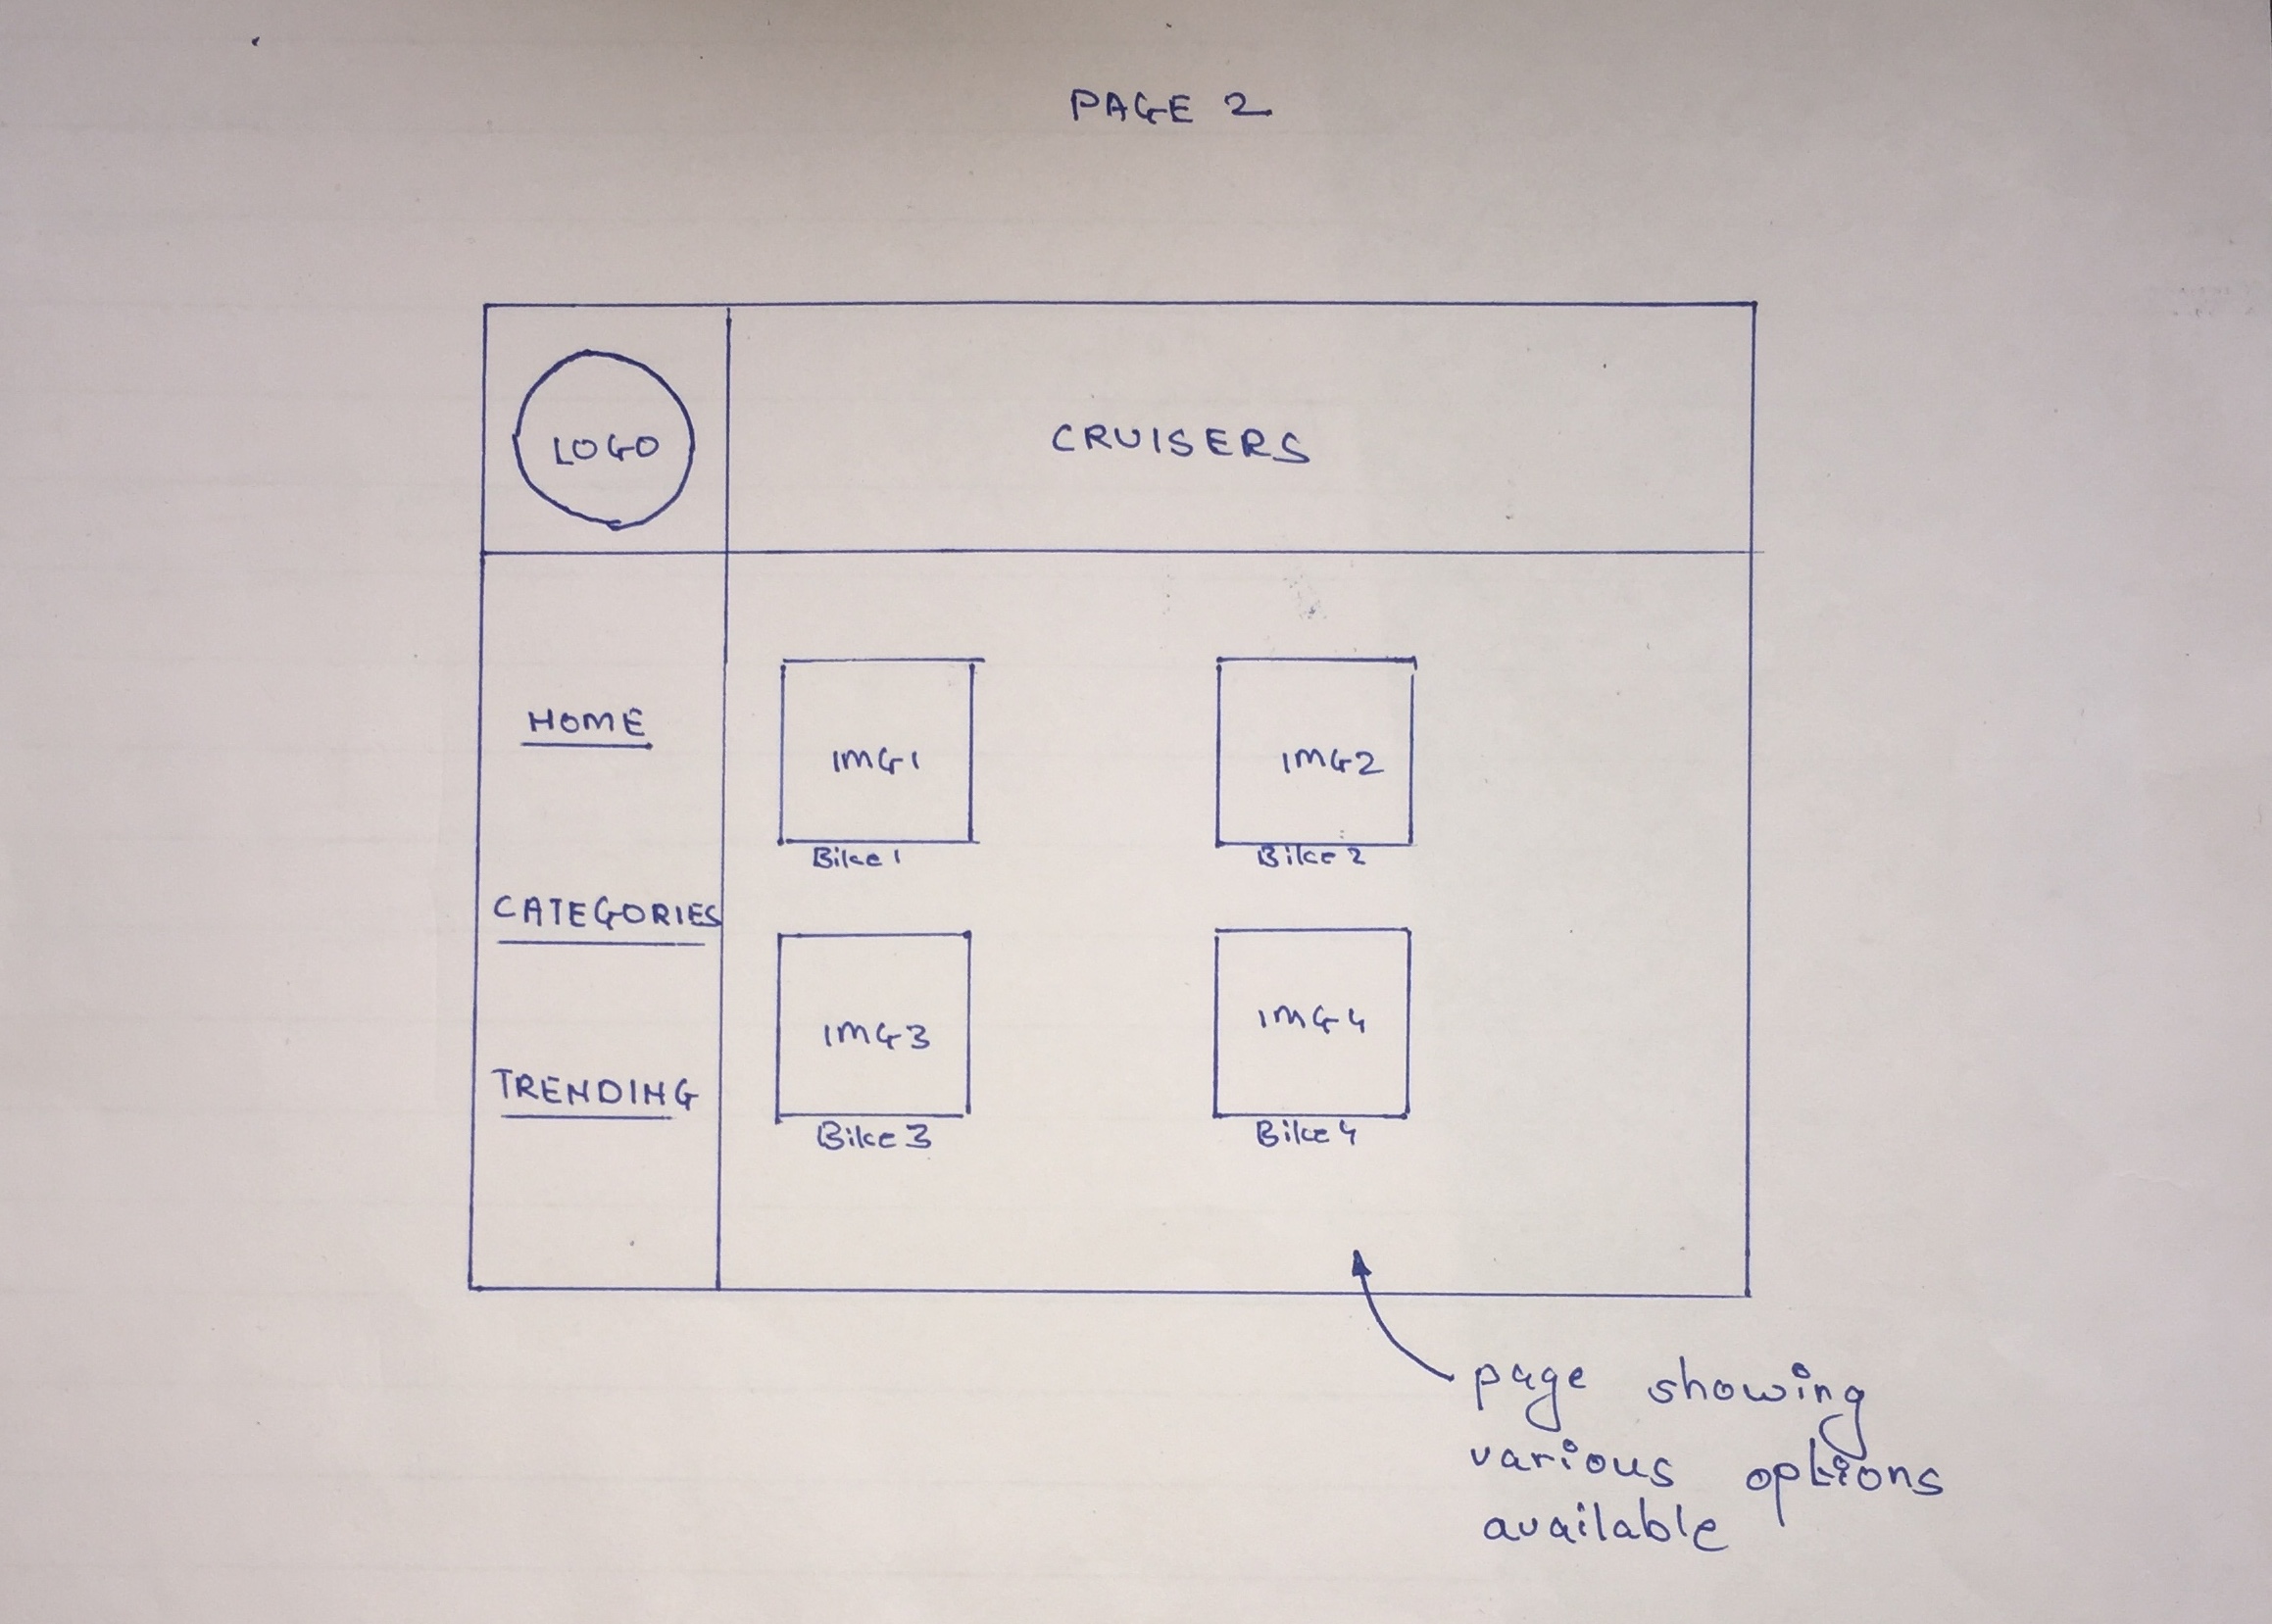 PAGE 2
LOGO
CRUISERS
HOME
CATEGORIES
TRENDING
IMG1
IMG2
Bike 1
Bike 2
IMG3
IMG4
Bike 3
Bike 4
page showing
various options
available